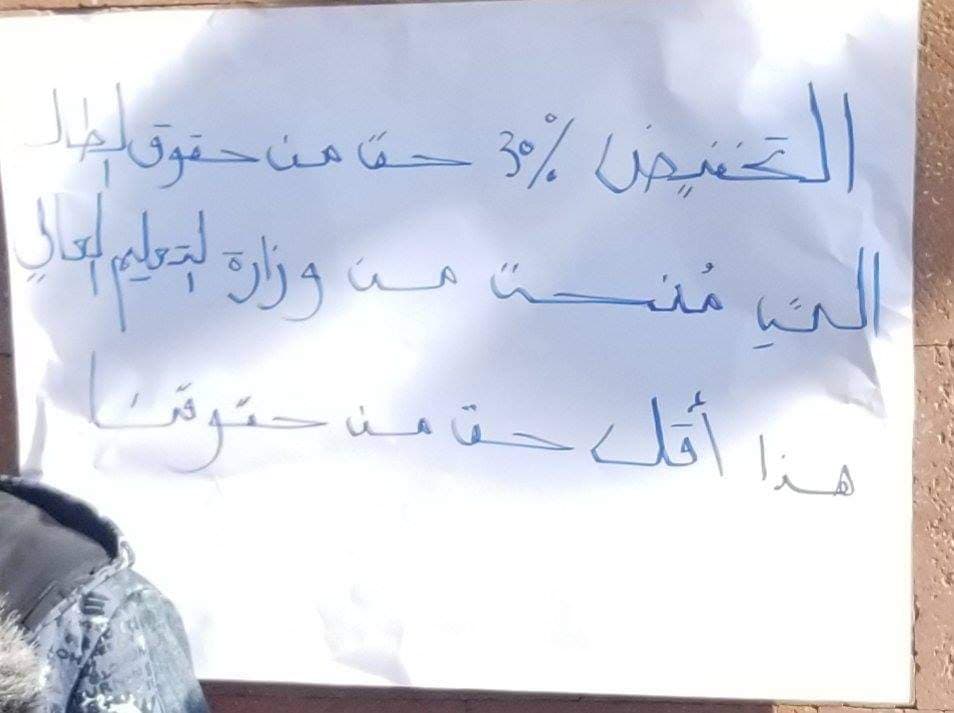 التخفيض 30% حق من حقوق الطالب
التي مُنحت من وزارة التعليم العالي
هذا أقل حق من حقوقنا